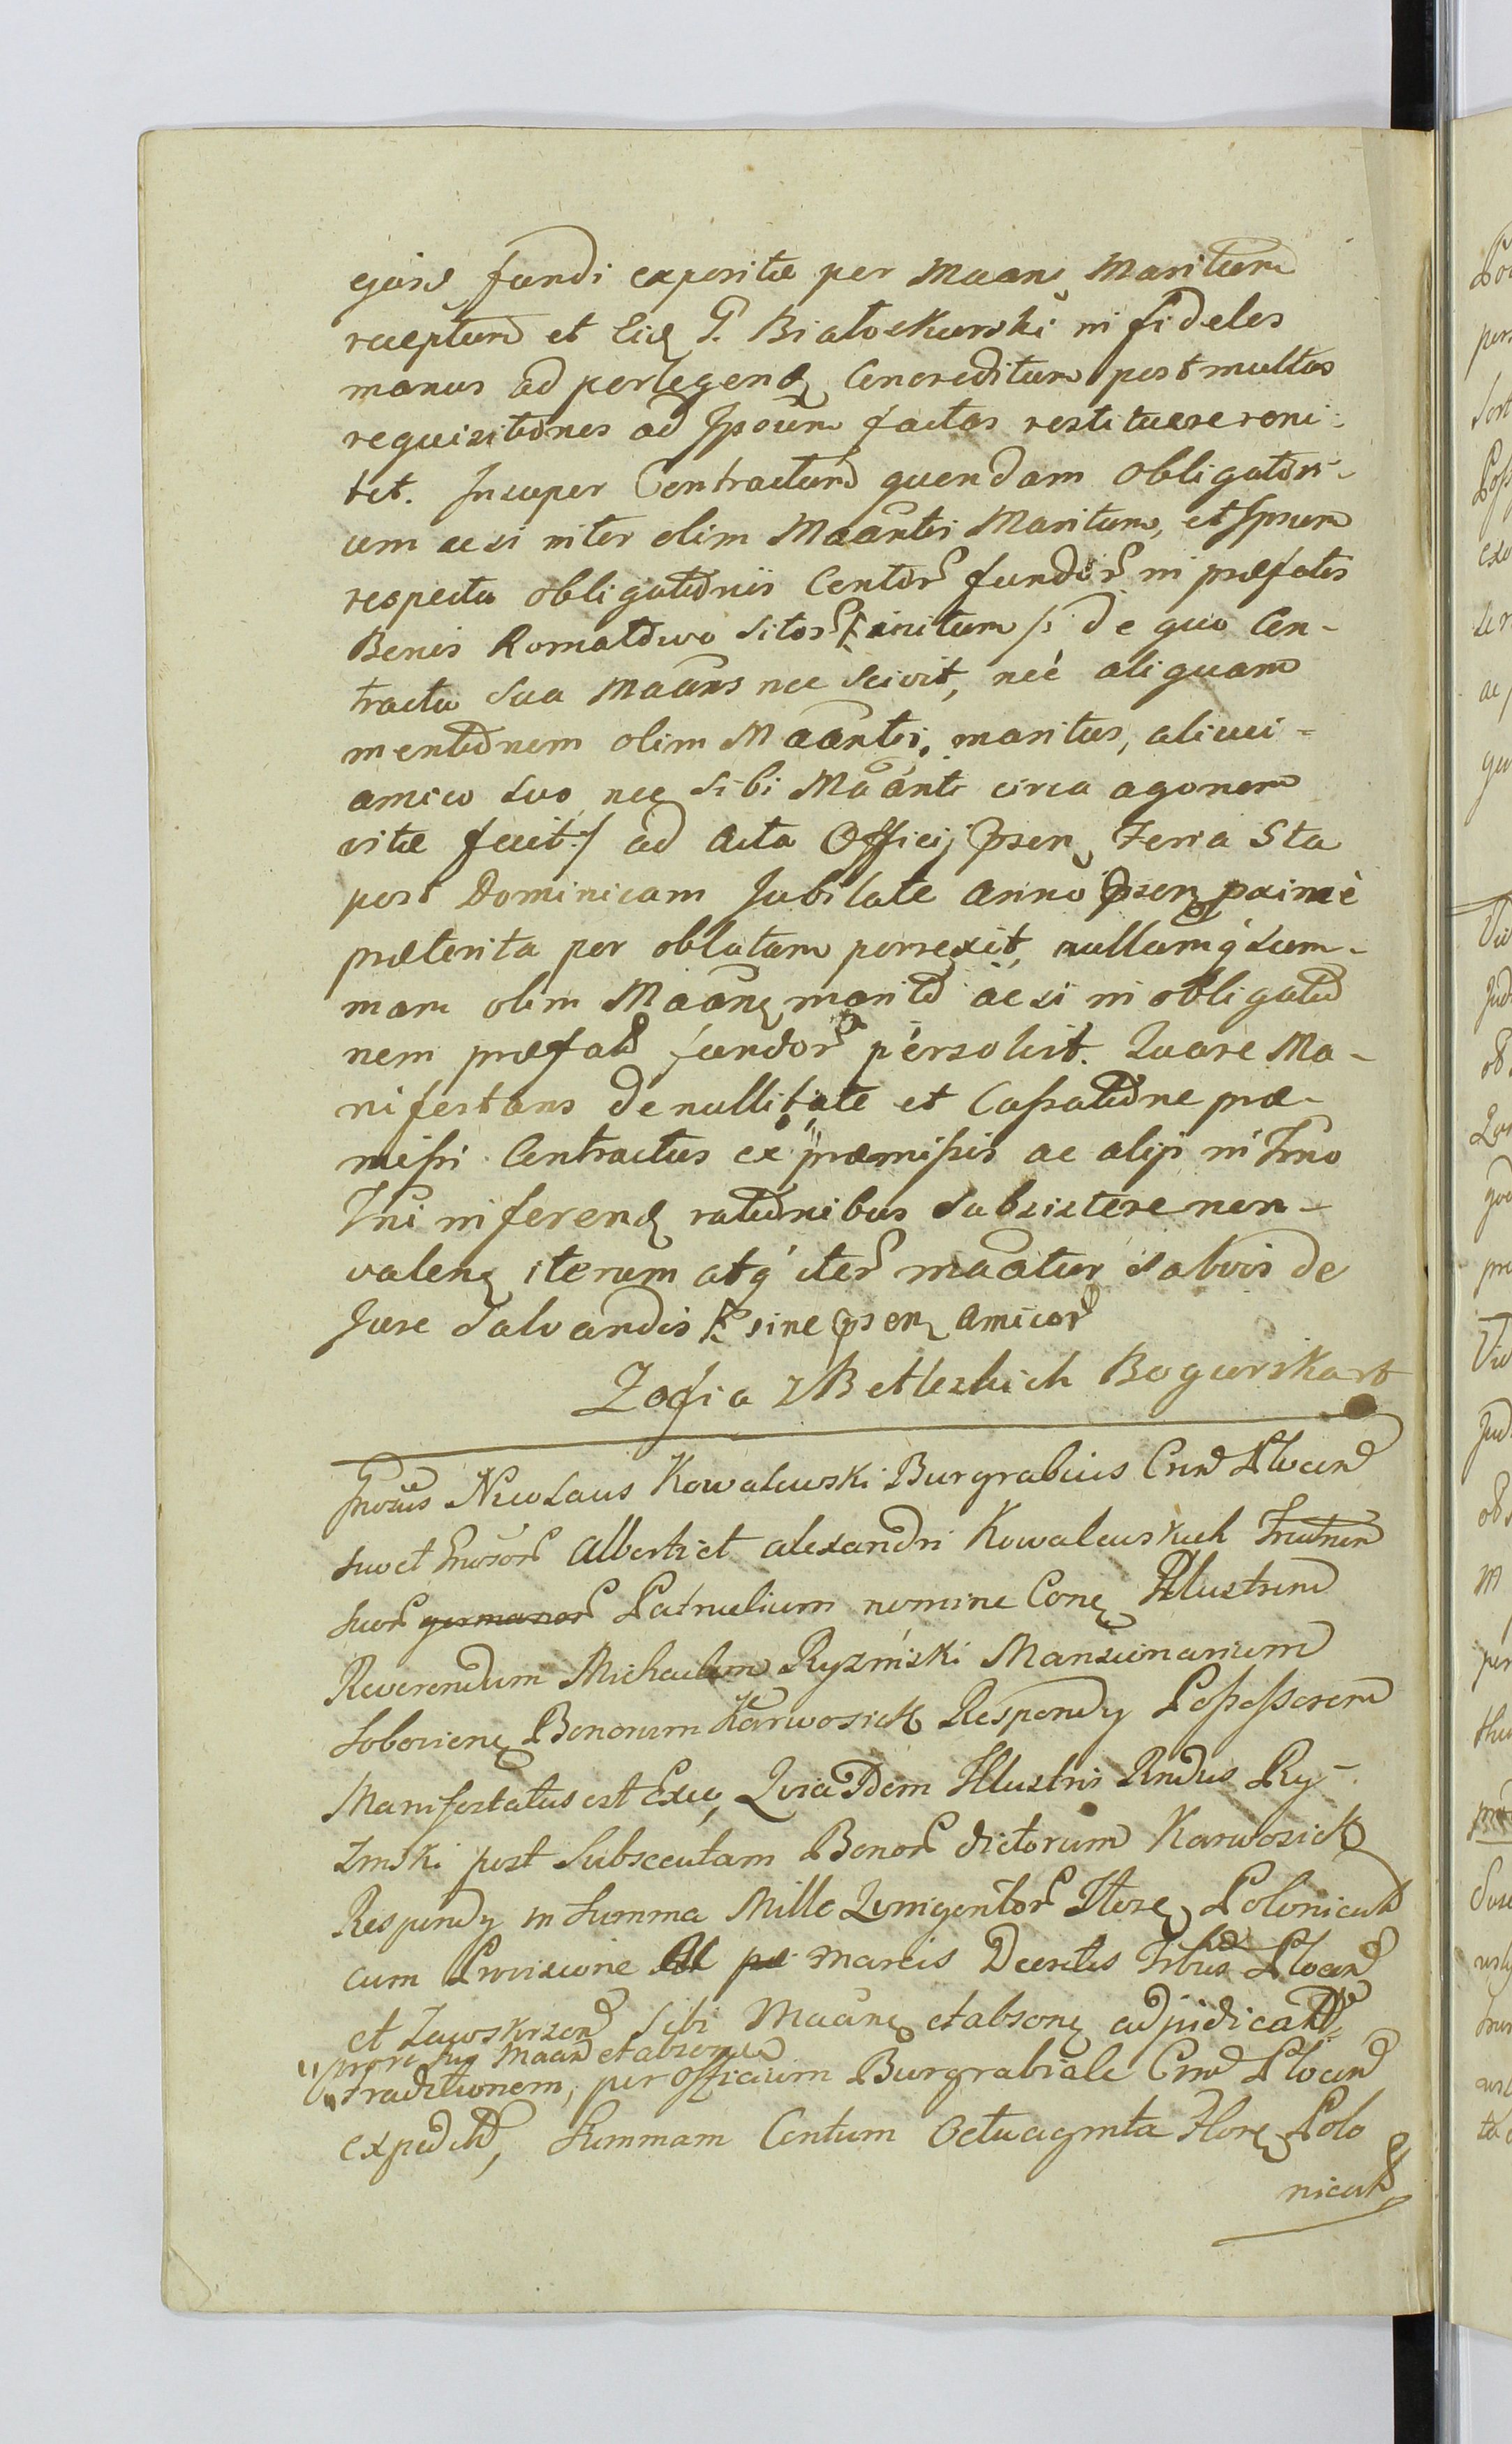 ejusd fundi expositæ per Maanę Maritum
receptum et Eidę P. Białoskurski in fideles
manus ad perlegendę Concreditum post multas
requisitiones ad Ipsum factas restituere reni-
tet. Insuper Contractum quendam obligatori-
um acsi inter olim Maantis Maritum, et Ipsum
respectu obligationis Certor fundor in præfatis
Bonis Romatowo sitor initum /: de quo Con-
tractu sua Maans nec scivit, nec aliquam
mentionem olim Maantis, maritus, alicui
amico suo nec sibi Maanti circa agonem
vitæ fecit :/ ad Acta Officij Psenę Feria 5ta
post Dominicam Jubilate Anno Psenę pxime
præterita per oblatam porrexit, nullamq sum-
mam olim Maanę marito acsi in obligatio
nem præfat fundor persolvit. Quare Ma-
nifestans de nullitate et Cassatione præ-
missi Contractus ex præmissis ac alijs in Trno
Juri inferendę rationibus subsistere non-
valenę iterum atq iter maatur salvis de
Jure salvandis sine psenę Amicor
Zofia z Betleskich Bogurska
Gnosus Nicolaus Kowalewski Burgrabius Crud Plocand
suo et Gnosor Alberti et Alexandri Kowalewskich Fratrum
suor germanor Patruelium nomine Conę Illustrem
Reverendum Michaelem Ryzinski Mansionarium
Bonorum Karwosieck Respondy Possessorem
Manifestatus est Exię, Quia Idem Illustris Rndus Ry-
zinski post Subsecutam Bonor dictorum Karwosieck
Respondy in Summa Mille Quingentor Flore Polonicat
cum Provisione marcis Decretis Tribus Plocand
et Zawskrzend sibi Maanę et absonę adjudicat
Maand et absone
traditionem, per Officium Burgrabiale Crud Plocand
expedit, Summam Centum Octuaginta Flore Polo
nicat